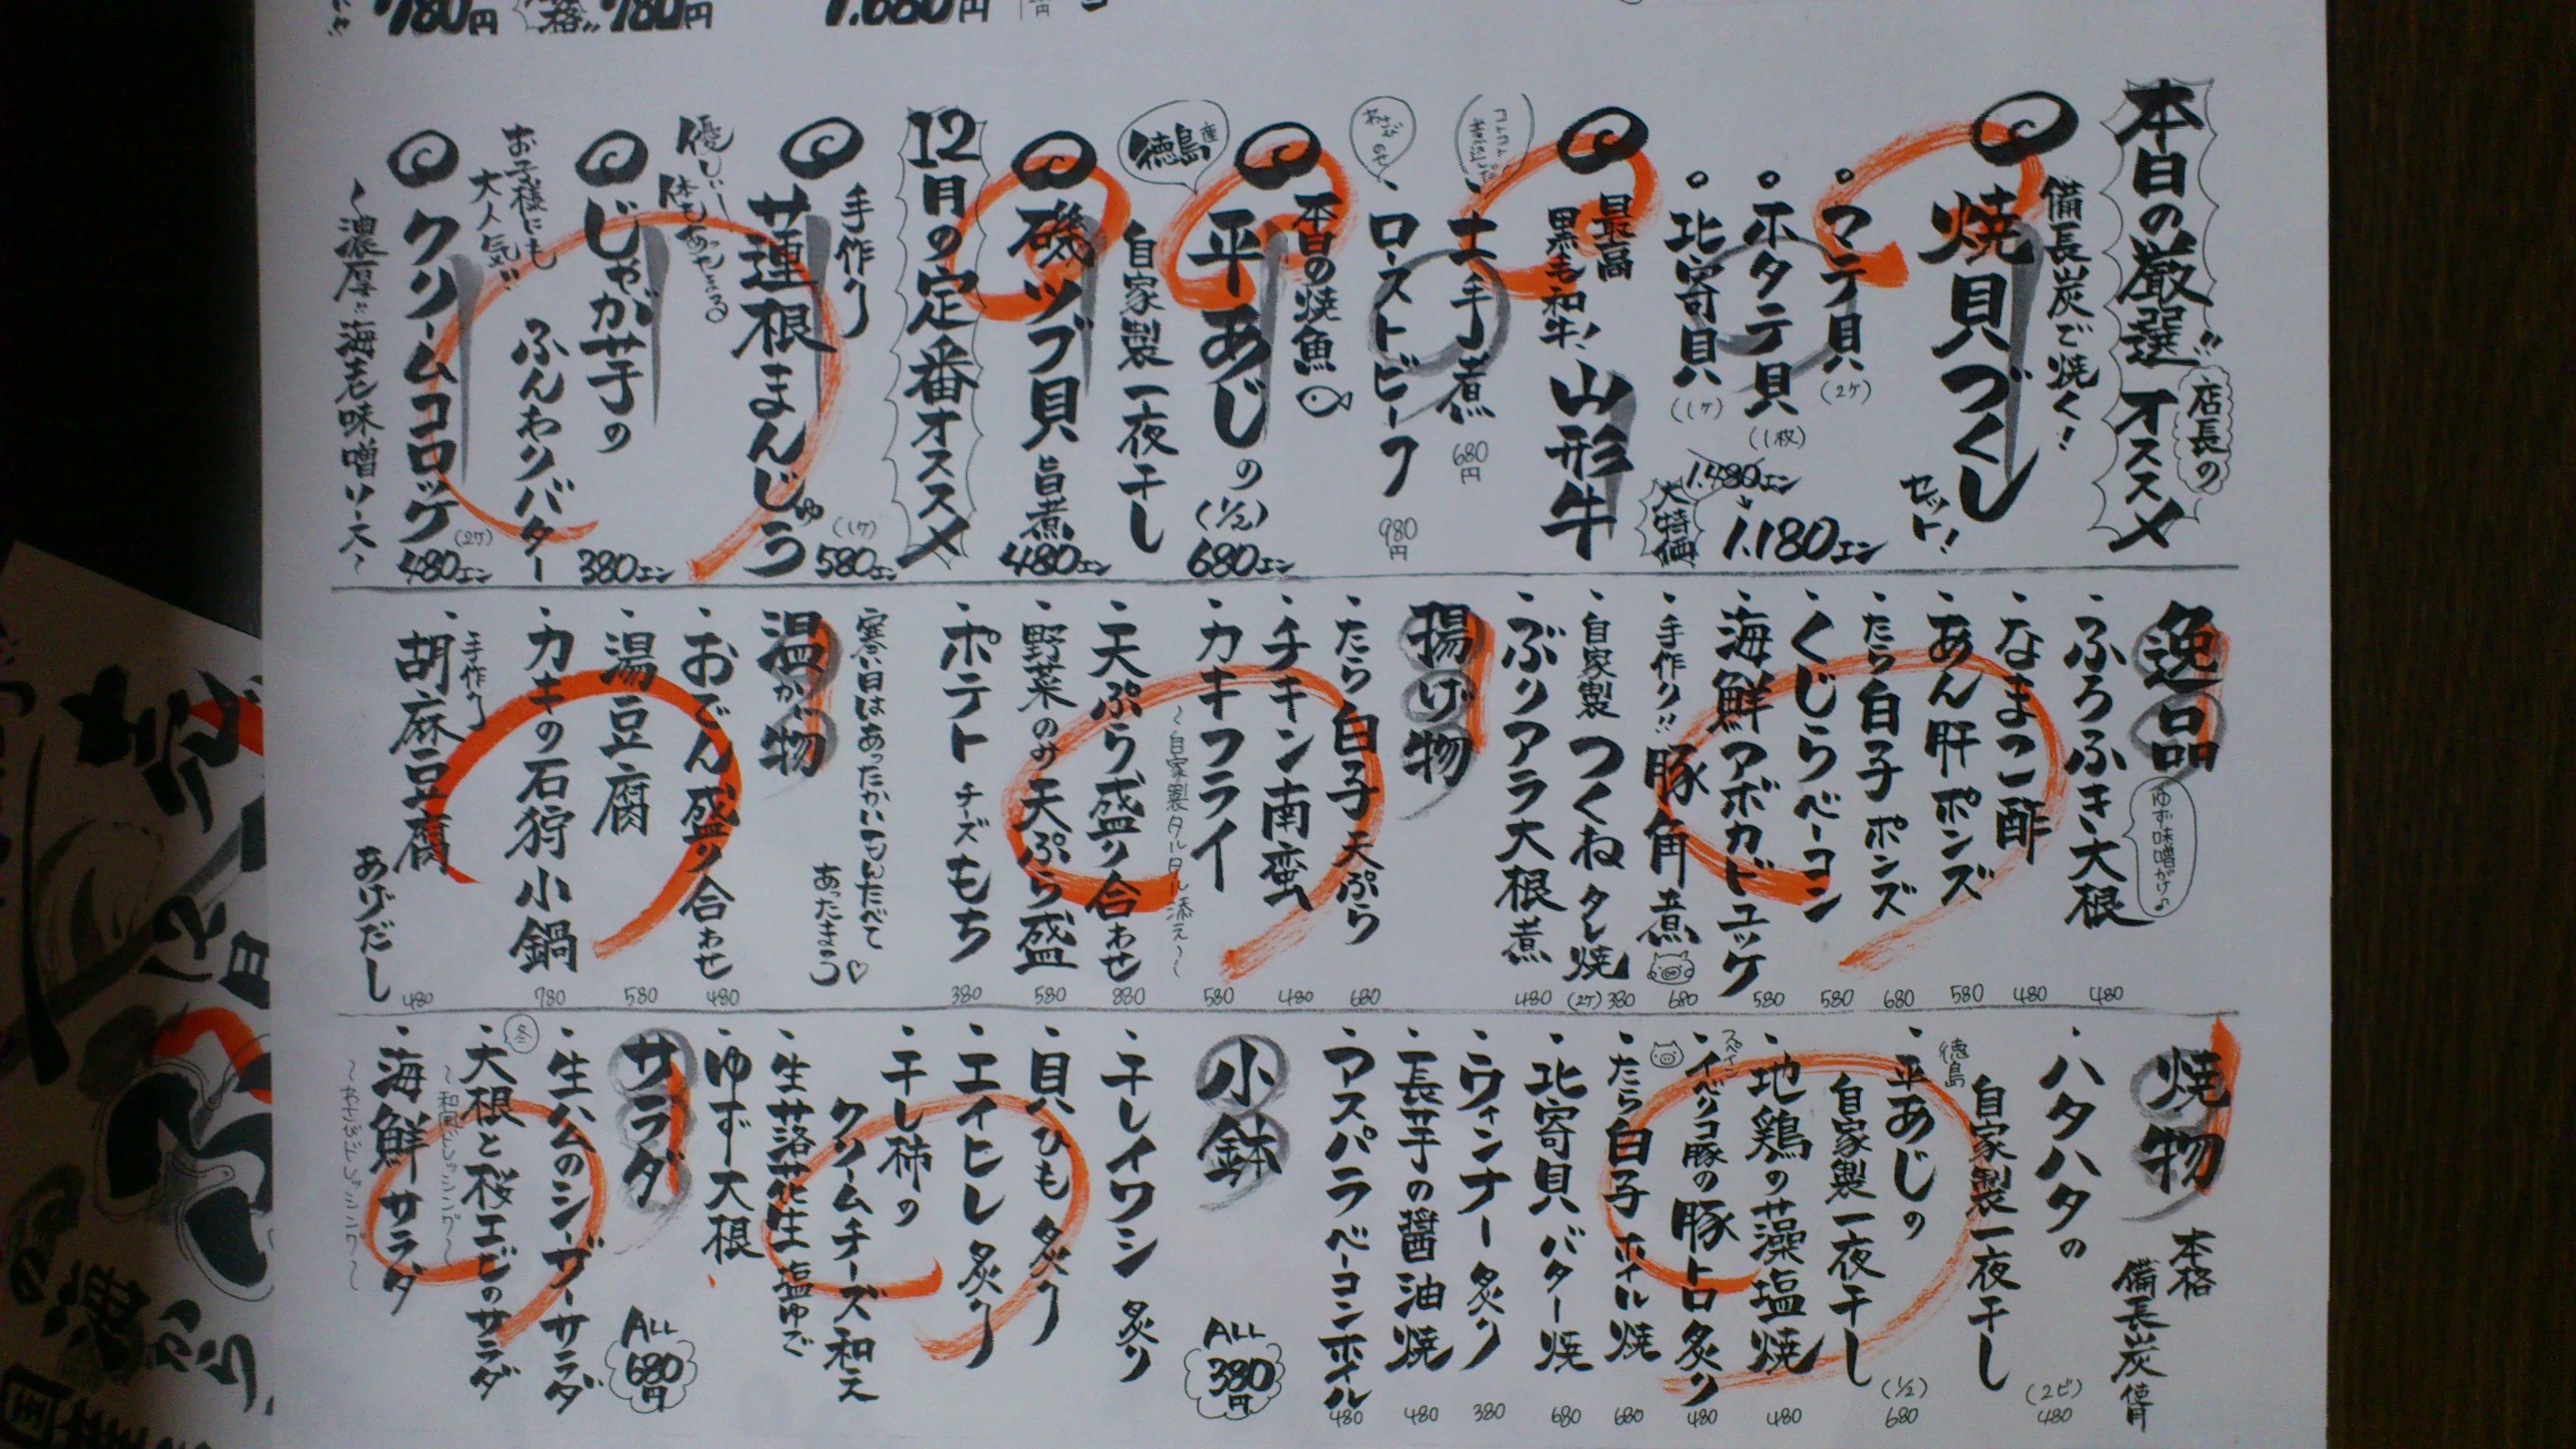 780円
780円
1.680円
本日の厳選オススメ!!
店長の
備長炭で焼く!
焼貝づくし
セット!
マテ貝(2ケ)
ホタテ貝(1枚)
北寄貝(1ケ)
1.480エン
1.180エン
大特価
最高
黒毛和牛!
山形牛
土手煮
680円
ローストビーフ
980円
本日の焼魚
平あじの(1/2)
自家製一夜干し
徳島産
680エン
磯ツブ貝旨煮
480エン
12月の定番オススメ
手作り
蓮根まんじゅう(1ケ)
580エン
優しい
じゃが芋の
ふんわりバター
380エン
お子様にも
大人気!!
クリームコロッケ(2ケ)
480エン
~濃厚!!海老味噌ソース~
逸品
ふろふき大根 480
ゆず味噌がけ♪
なまこ酢 480
あん肝ポンズ 580
たら白子ポンズ 680
くじらベーコン 580
海鮮アボカドユッケ 580
手作り!!豚角煮 680
自家製つくねタレ焼(2ケ) 380
ぶりアラ大根煮 480
揚げ物
たら白子天ぷら 680
チキン南蛮 480
カキフライ 580
~自家製タルタル添え~
天ぷら盛り合わせ 880
野菜のみ天ぷら盛 580
ポテトチーズもち 380
寒い日はあったかいもんたべて
あったまろ♡
温か物
おでん盛り合わせ 480
湯豆腐 580
カキの石狩小鍋 780
手作り
胡麻豆腐
あげだし 480
焼物
本格
備長炭使用
ハタハタの
自家製一夜干し(2ビ) 480
徳島
平あじの
自家製一夜干し(1/2) 680
地鶏の藻塩焼 480
スペイン
イベリコ豚の豚トロ炙り 480
たら白子ホイル焼 680
北寄貝バター焼 680
ウィンナー炙り 380
長芋の醤油焼 480
アスパラベーコンホイル 480
小鉢
ALL
380円
干しイワシ炙り
貝ひも炙り
エイヒレ炙り
干し柿の
クリームチーズ和え
生落花生塩ゆで
ゆず大根
サラダ
ALL
680円
生ハムのシーザーサラダ
冬
大根と桜エビのサラダ
~和風ドレッシング~
海鮮サラダ
~わさびドレッシング~